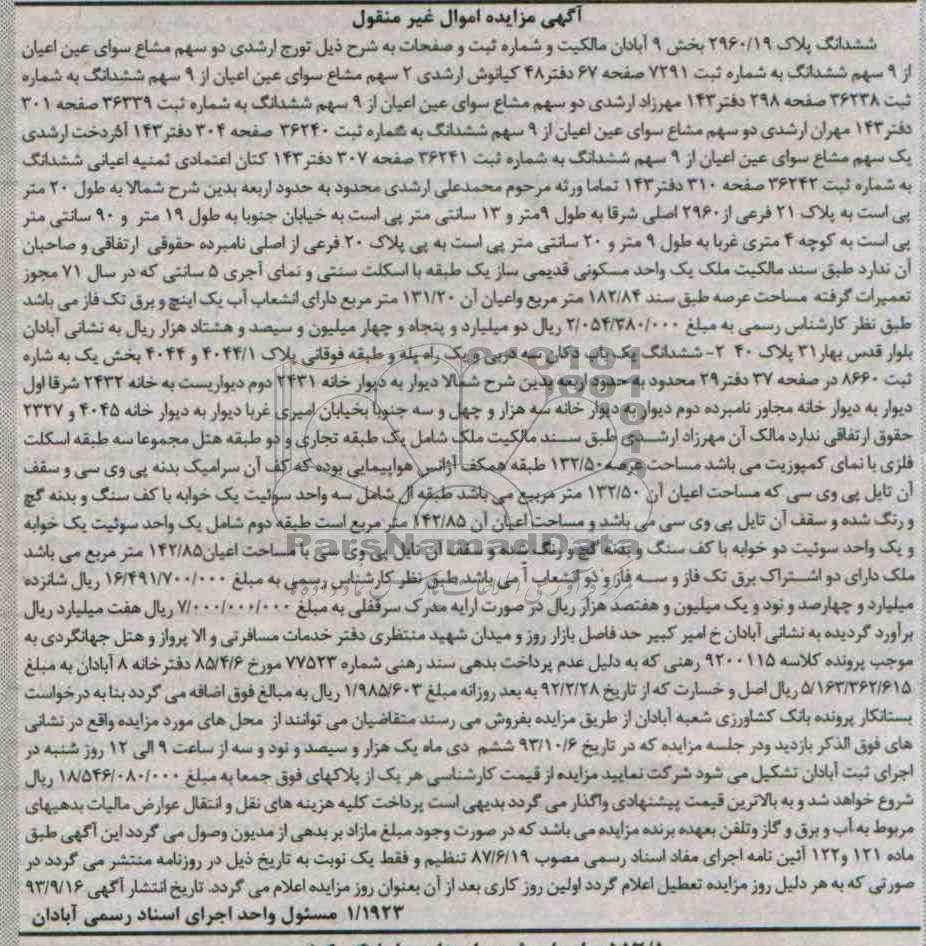 آگهی مزایده اموال غیر منقول
ششدانگ پلاک ۲۹۶۰/۱۹ بخش ۹ آبادان مالکیت و شماره ثبت و صفحات به شرح ذیل تورج ارشدی دو سهم مشاع سوای عین اعیان
از ۹ سهم ششدانگ به شماره ثبت ۷۲۹۱ صفحه ۶۷ دفتر۴۸ کیانوش ارشدی ۲ سهم مشاع سوای عین اعیان از ۹ سهم ششدانگ به شماره
ثبت ۳۶۲۳۸ صفحه ۲۹۸ دفتر۱۴۳ مهرزاد ارشدی دو سهم مشاع سوای عین اعیان از ۹ سهم ششدانگ به شماره ثبت ۳۶۲۳۹ صفحه ۳۰۱
دفتر۱۴۳ مهران ارشدی دو سهم مشاع سوای عین اعیان از ۹ سهم ششدانگ به شماره ثبت ۳۶۲۴۰ صفحه ۳۰۴ دفتر۱۴۳ آذردخت ارشدی
یک سهم مشاع سوای عین اعیان از ۹ سهم ششدانگ به شماره ثبت ۳۶۲۴۱ صفحه ۳۰۷ دفتر۱۴۳ کتان اعتمادی ثمنیه اعیانی ششدانگ
به شماره ثبت ۳۶۲۴۲ صفحه ۳۱۰ دفتر۱۴۳ تماما ورثه مرحوم محمدعلی ارشدی محدود به حدود اربعه بدین شرح شمالا به طول ۲۰ متر
پی است به پلاک ۲۱ فرعی از۲۹۶۰ اصلی شرقا به طول ۹متر و ۱۳ سانتی متر پی است به خیابان جنوبا به طول ۱۹ متر و ۹۰ سانتی متر
پی است به کوچه ۴ متری غربا به طول ۹ متر و ۲۰ سانتی متر پی است به پی پلاک ۲۰ فرعی از اصلی نامبرده حقوقی ارتفاقی و صاحبان
آن ندارد طبق سند مالکیت ملک یک واحد مسکونی قدیمی ساز یک طبقه با اسکلت سنتی و نمای آجری ۵ سانتی که در سال ۷۱ مجوز
تعمیرات گرفته مساحت عرصه طبق سند ۱۸۲/۸۴ متر مربع واعیان آن ۱۳۱/۲۰ متر مربع دارای انشعاب آب یک اینچ و برق تک فاز می باشد
طبق نظر کارشناس رسمی به مبلغ ۲/۰۵۴/۳۸۰/۰۰۰ ریال دو میلیارد و پنجاه و چهار میلیون و سیصد و هشتاد هزار ریال به نشانی آبادان
بلوار قدس بهار۳۱ پلاک ۴۰ ۲- ششدانگ یک باب دکان سه دربی و یک راه پله و طبقه فوقانی پلاک ۴۰۴۴/۱ و ۴۰۴۴ بخش یک به شاره
ثبت ۸۶۶۰ در صفحه ۳۷ دفتر۲۹ محدود به حدود اربعه بدین شرح شمالا دیوار به دیوار خانه ۲۴۳۱ دوم دیواریست به خانه ۲۴۳۲ شرقا اول
دیوار به دیوار خانه مجاور نامبرده دوم دیوار به دیوار خانه سه هزار و چهل و سه جنوبا بخیابان امیری غربا دیوار به دیوار خانه ۴۰۴۵ و ۲۳۲۷
حقوق ارتفاقی ندارد مالک آن مهرزاد ارشدی طبق سند مالکیت ملک شامل یک طبقه تجاری و دو طبقه هتل مجموعا سه طبقه اسکلت
فلزی با نمای کمپوزیت می باشد مساحت عرصه۱۳۲/۵۰ طبقه همکف آژانس هواپیمایی بوده که کف آن سرامیک بدنه پی وی سی و سقف
آن تایل پی وی سی که مساحت اعیان آن ۱۳۲/۵۰ متر مربیع می باشد طبقه ال شامل سه واحد سوئیت یک خوابه با کف سنگ و بدنه گچ
و رنگ شده و سقف آن تایل پی وی سی می باشد و مساحت اعیان آن ۱۴۲/۸۵ متر مربع است طبقه دوم شامل یک واحد سوئیت یک خوابه
و یک واحد سوئیت دو خوابه با کف سنگ و بدنه گچ و رنگ شده و سقف آن تایل پی وی سی با مساحت اعیان۱۴۲/۸۵ متر مربع می باشد
ملک دارای دو اشتراک برق تک فاز و سه فاز و دو انشعاب آ می باشد طبق نظر کارشناس رسمی به مبلغ ۱۶/۴۹۱/۷۰۰/۰۰۰ ریال شانزده
میلیارد و چهارصد و نود و یک میلیون و هفتصد هزار ریال در صورت ارایه مدرک سرقفلی به مبلغ ۷/۰۰۰/۰۰۰/۰۰۰ ریال هفت میلیارد ریال
برآورد گردیده به نشانی آبادان خ امیر کبیر حد فاصل بازار روز و میدان شهید منتظری دفتر خدمات مسافرتی و الا پرواز و هتل جهانگردی به
موجب پرونده کلاسه ۹۲۰۰۱۱۵ رهنی که به دلیل عدم پرداخت بدهی سند رهنی شماره ۷۷۵۲۳ مورخ ۸۵/۴/۶ دفترخانه ۸ آبادان به مبلغ
۵/۱۶۳/۳۶۲/۶۱۵ ریال اصل و خسارت که از تاریخ ۹۲/۲/۲۸ به بعد روزانه مبلغ ۱/۹۸۵/۶۰۳ ریال به مبالغ فوق اضافه می گردد بنا به درخواست
بستانکار پرونده بانک کشاورزی شعبه آبادان از طریق مزایده بفروش می رسند متقاضیان می توانند از محل های مورد مزایده واقع در نشانی
های فوق الذکر بازدید ودر جلسه مزایده که در تاریخ ۹۳/۱۰/۶ ششم دی ماه یک هزار و سیصد و نود و سه از ساعت ۹ الی ۱۲ روز شنبه در
اجرای ثبت آبادان تشکیل می شود شرکت نمایید مزایده از قیمت کارشناسی هر یک از پلاکهای فوق جمعا به مبلغ ۱۸/۵۴۶/۰۸۰/۰۰۰ ریال
شروع خواهد شد و به بالاترین قیمت پیشنهادی واگذار می گردد بدیهی است پرداخت کلیه هزینه های نقل و انتقال عوارض مالیات بدهیهای
مربوط به آب و برق و گاز وتلفن بعهده برنده مزایده می باشد که در صورت وجود مبلغ مازاد بر بدهی از مدیون وصول می گردد این آگهی طبق
ماده ۱۲۱ و۱۲۲ آئین نامه اجرای مفاد اسناد رسمی مصوب ۸۷/۶/۱۹ تنظیم و فقط یک نوبت به تاریخ ذیل در روزنامه منتشر می گردد در
صورتی که به هر دلیل روز مزایده تعطیل اعلام گردد اولین روز کاری بعد از آن بعنوان روز مزایده اعلام می گردد. تاریخ انتشار آگهی ۹۳/۹/۱۶
۱/۱۹۲۳ مسئول واحد اجرای اسناد رسمی آبادان
ParsNamadData